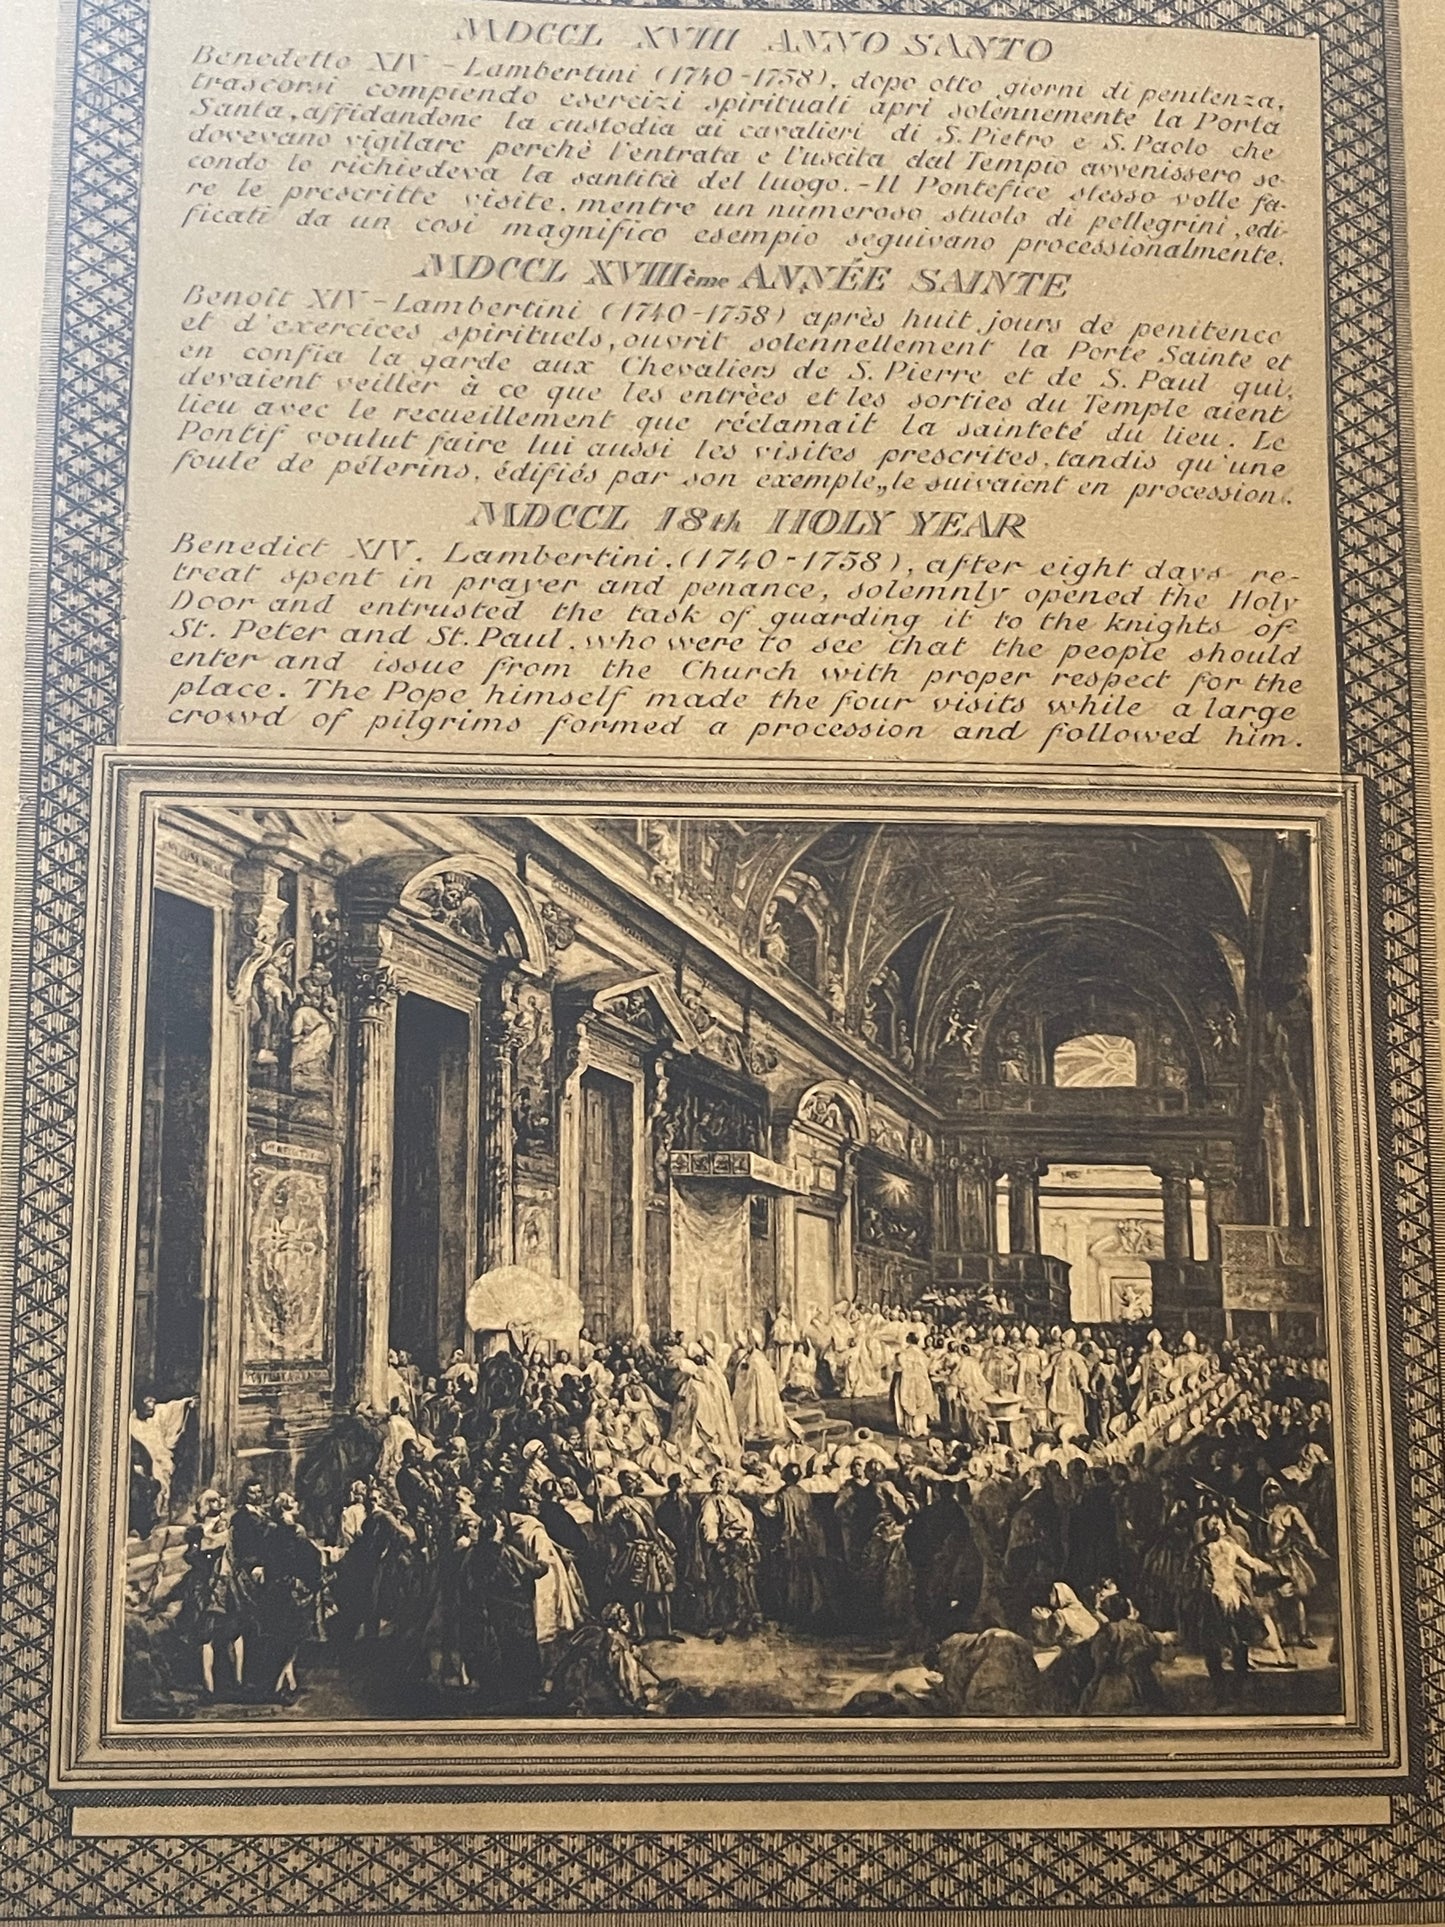 MDCCL XVIII ANNO SANTO
Benedetto XIV - Lambertini (1740-1758), dopo otto giorni di penitenza,
trascorsi compiendo esercizi spirituali aprì solennemente la Porta
Santa, affidandone la custodia ai cavalieri di S. Pietro e S. Paolo che
dovevano vigilare perchè l'entrata e l'uscita dal Tempio avvenissero se-
condo lo richiedeva la santità del luogo. - Il Pontefice stesso volle fa-
re le prescritte visite, mentre un numeroso stuolo di pellegrini, edi-
ficati da un così magnifico esempio seguivano processionalmente.
MDCCL XVIIIème ANNÉE SAINTE
Benoît XIV - Lambertini (1740-1758) après huit jours de penitence
et d'exercices spirituels, ouvrit solennellement la Porte Sainte et
en confia la garde aux Chevaliers de S. Pierre et de S. Paul qui,
devaient veiller à ce que les entrèes et les sorties du Temple aient
lieu avec le recueillement que réclamait la sainteté du lieu. Le
Pontif voulut faire lui aussi les visites prescrites, tandis qu'une
foule de pélerins, édifiés par son exemple,,le suivaient en procession.
MDCCL 18th HOLY YEAR
Benedict XIV. Lambertini. (1740-1758), after eight days re-
treat spent in prayer and penance, solemnly opened the Holy
Door and entrusted the task of guarding it to the knights of
St. Peter and St. Paul, who were to see that the people should
enter and issue from the Church with proper respect for the
place. The Pope himself made the four visits while a large
crowd of pilgrims formed a procession and followed him.